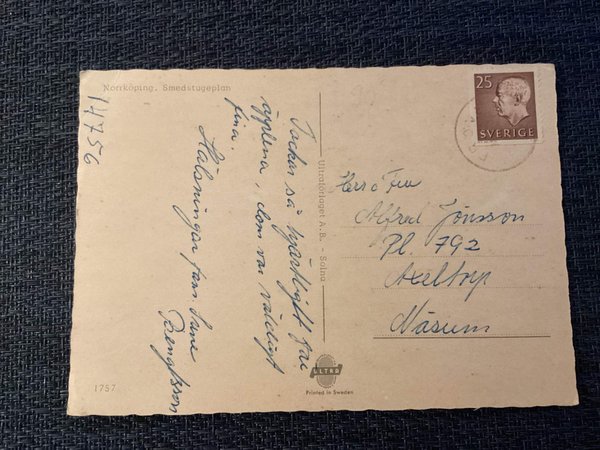 Norrköping. Smedstugeplan
14756
Tackar så hjärtligt för
äpplena, dom var väldigt
fina.
Hälsningar fam Sune
Bengtsson
Ultraförlaget A.B. - Solna
25
SVERIGE
Herr o Fru
Alfred Jönsson
Pl. 792
Axeltorp
Näsum
1757
ULTRA
Printed in Sweden